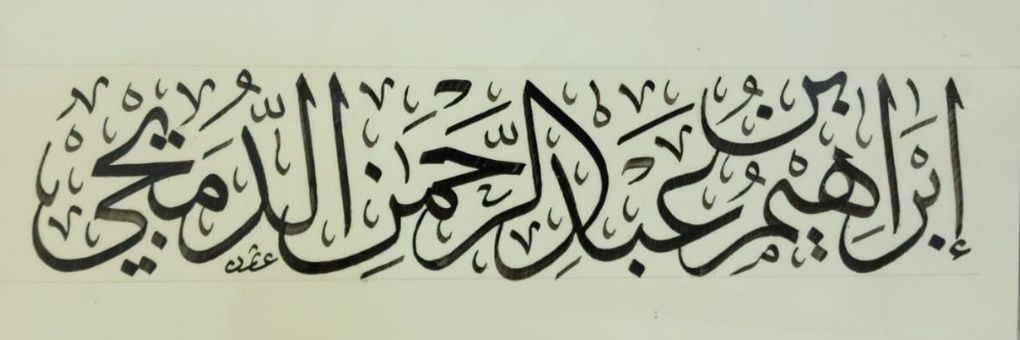 إِبْرَاهِيمُ بْنُ عَبْدِالرَّحْمَنِ الدُّمَيْجِي